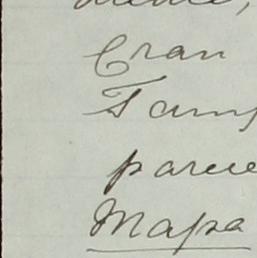 Cran
Tamp
parce
Mapa